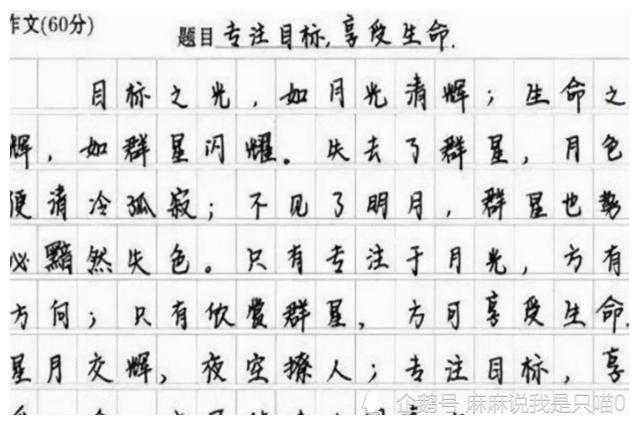 作文(60分)
题目 专注目标,享受生命.
目标之光,如月光清辉;生命之
辉,如群星闪耀。失去了群星,月色
便清冷孤寂;不见了明月,群星也势
必黯然失色。只有专注于月光,方有
方向;只有欣赏群星,方可享受生命.
星月交辉,夜空撩人;专注目标,享
企鹅号 麻麻说我是只喵0